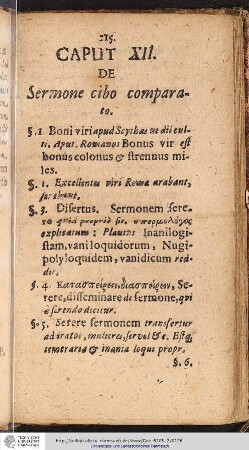 215.
CAPUT XII.
DE
Sermone cibo comparato.
§. 1 Boni viri apud Scythas ut dii culti. Aput. Romanos Bonus vir est
bonus colonus & strenuus miles.
§. 2. Excellentes viri Romæ arabant,
§. 3. Disertus. Sermonem sere-
re quid propriè sit.
explicatum: Plautus Inanilogi-
stam, vaniloquidorum, Nugi-
polyloquidem, vanidicum red-
§. 4. Κατασπείρειν, διασπείρειν, Se-
rere, disseminare de sermone, qvi
à serendo dicitur.
§. 5. Serere sermonem transfertur
ad iratos, mulieres, servos & c. Estq;
temeraria & inania loqui propr.
§. 6.